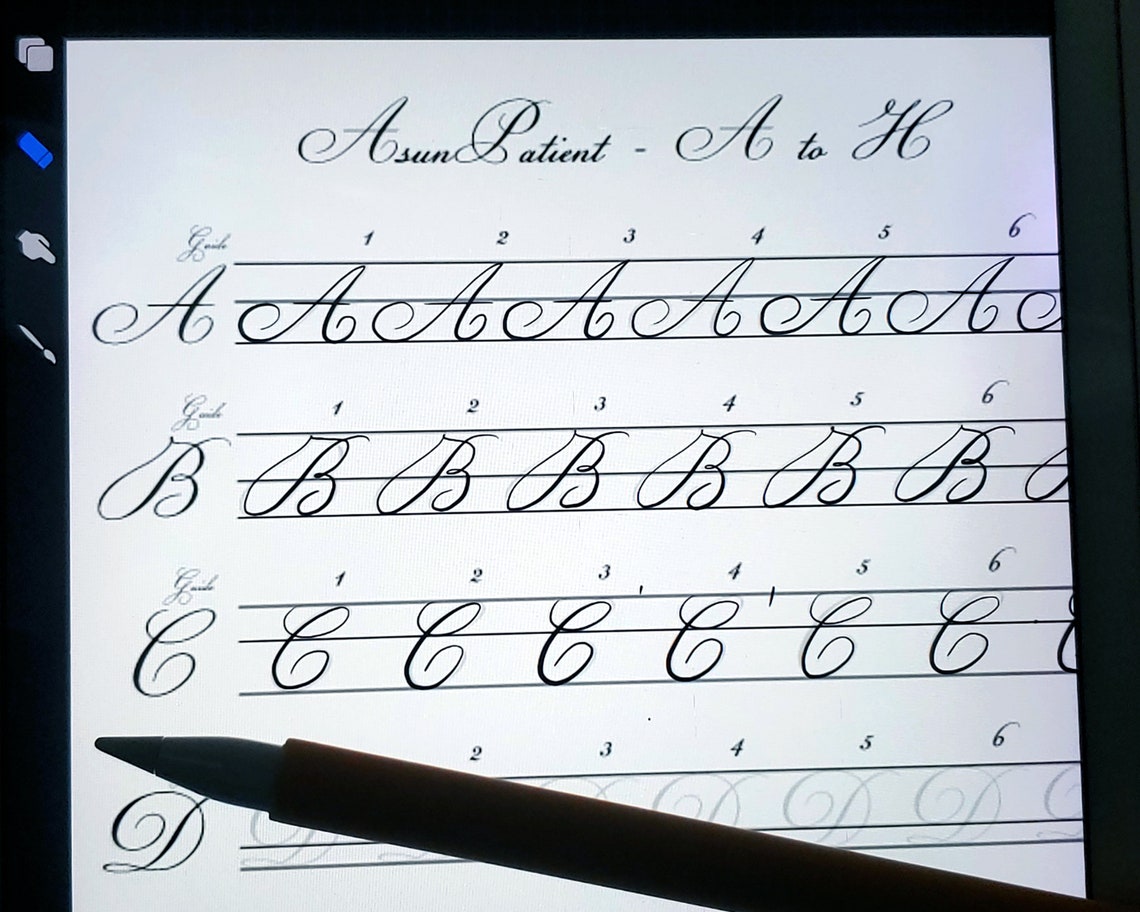 AsunPatient - A to H
Guide 1 2 3 4 5 6
A A A A A A A
Guide 1 2 3 4 5 6
B B B B B B B
Guide 1 2 3 4 5 6
C C C C C C C
2 3 4 5 6
D D D D D D D